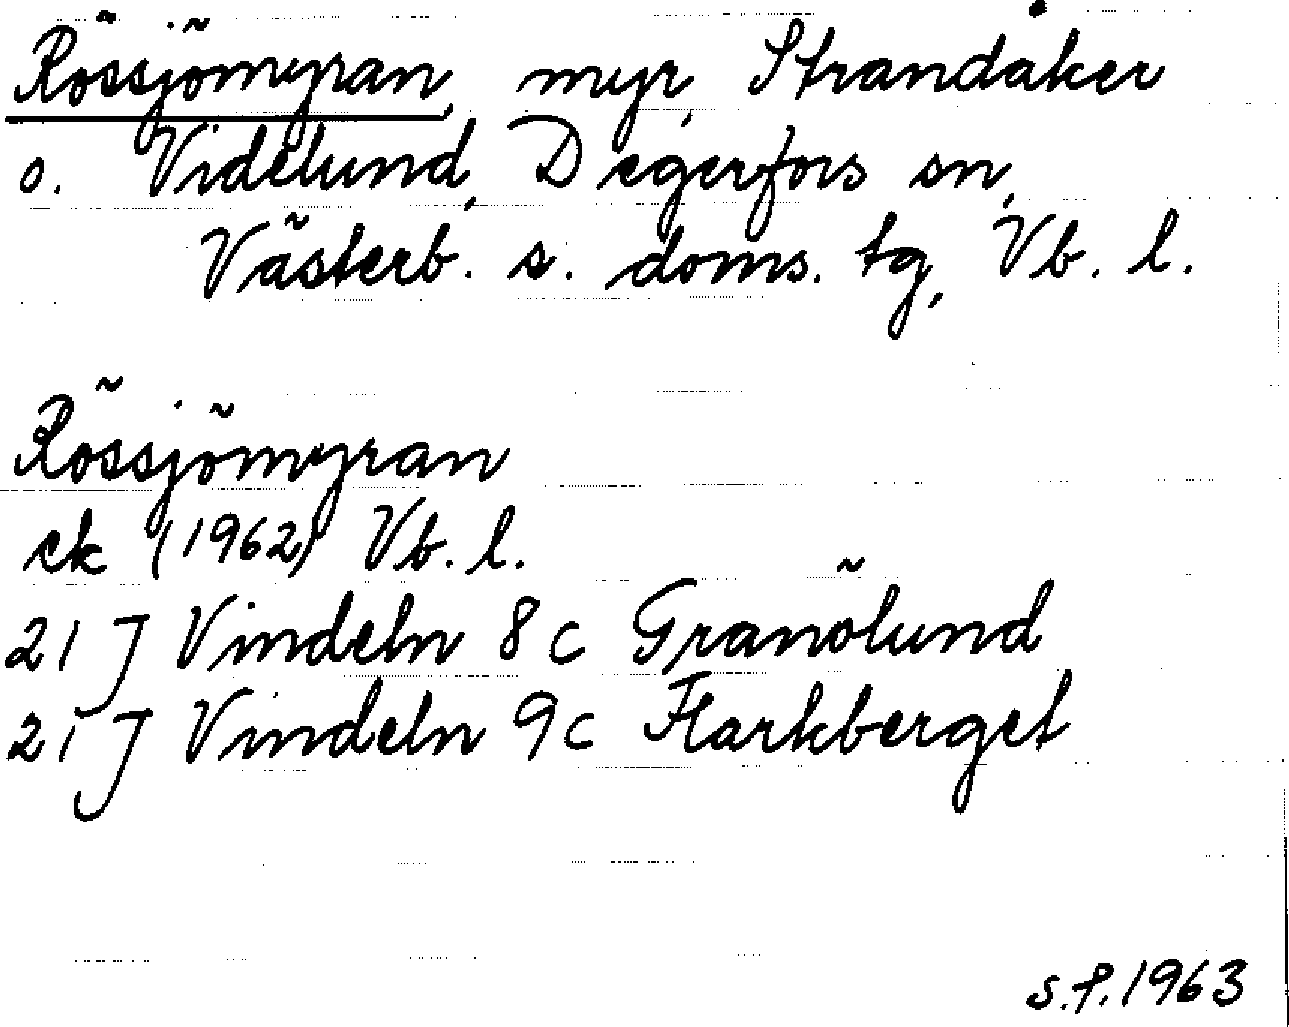 Rössjömyran, myr, Strandåker
o. Videlund, Degerfors sn,
Västerb. s. doms. tg, Vb. l.
Rössjömyran
ek (1962) Vb. l.
21 J Vindeln 8 c Granölund
21 J Vindeln 9 c Flarkberget
s.f. 1963